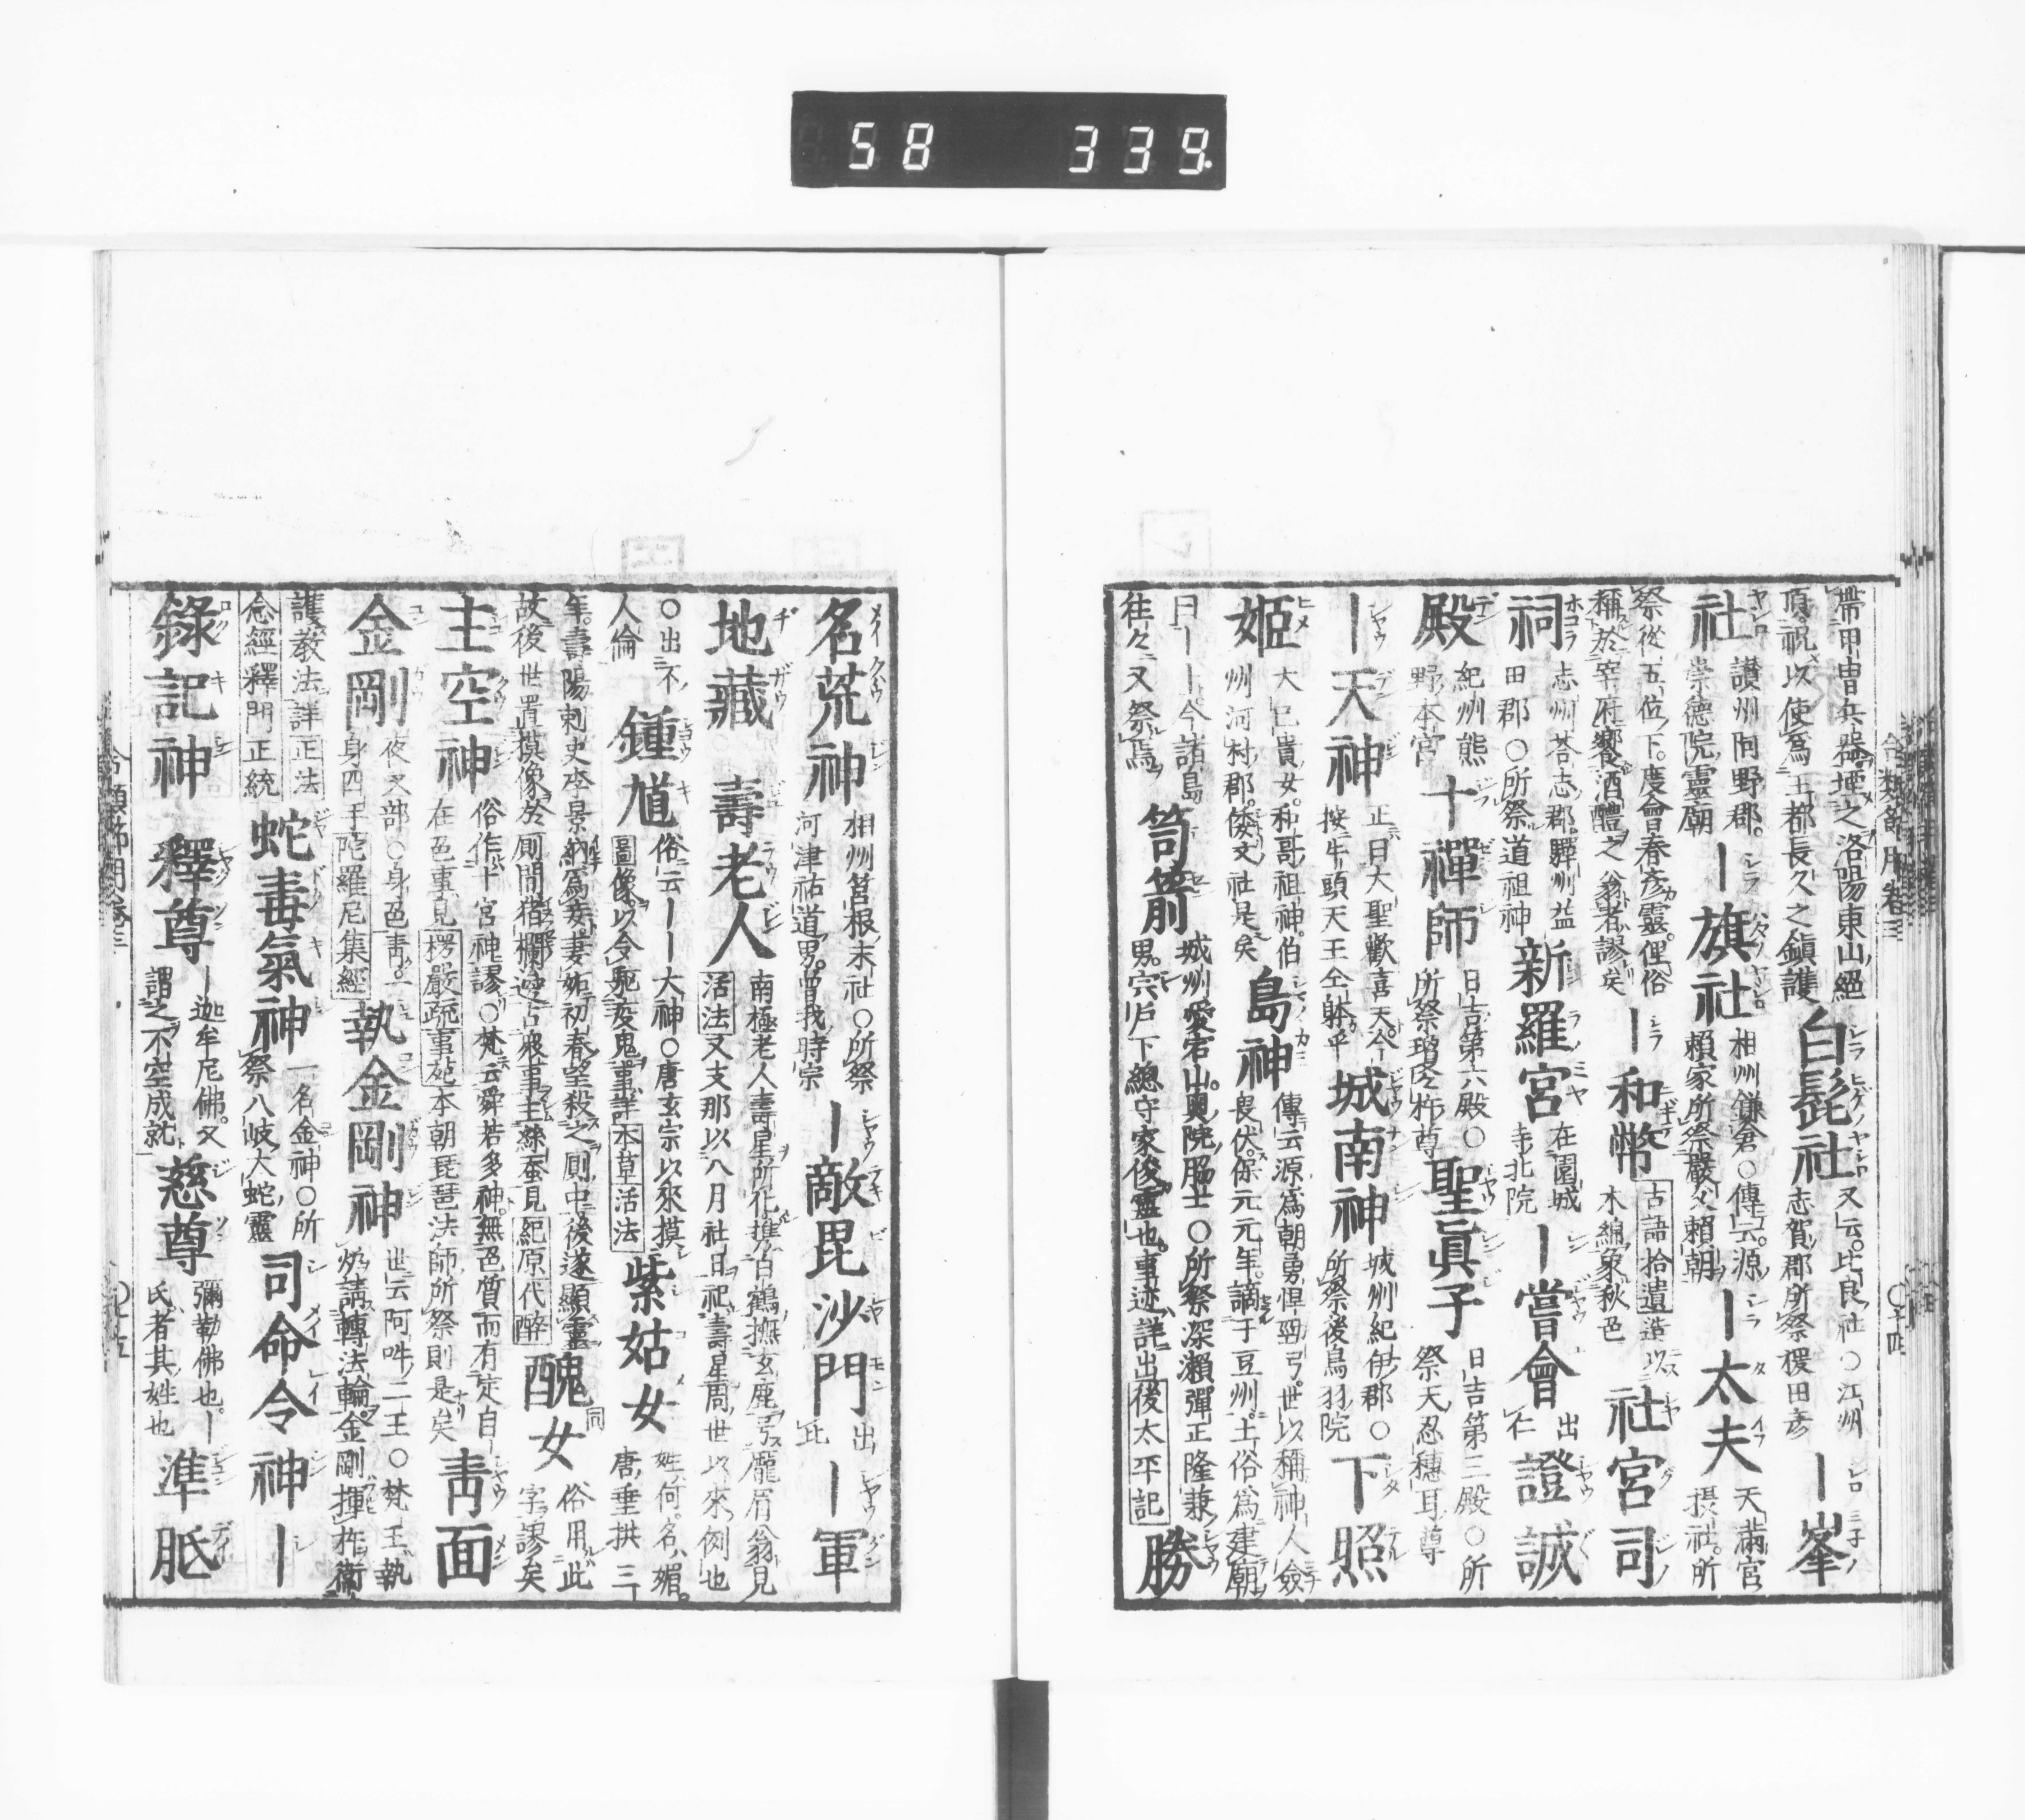 58 339
帶甲冑兵器埋之洛陽東山絕
頂祝以使爲王都長久之鎭護
白髭社
又云比良社○江州
志賀郡所祭猨田彥
｜峯
社
讃州阿野郡
崇德院靈廟
｜旗社
相州鎌倉○傳云源
賴家所祭嚴父賴朝
｜太夫
天滿宮
摂社所
祭從五位下度會春彥靈俚俗
稱於宰府饗酒醴之翁者謬矣
｜和幣
古語拾遺造以
木綿衆秋邑
社宮司
祠
志州荅志郡驒州益
田郡○所祭道祖神
新羅宮
在園城
寺北院
｜嘗會
出
仁
證誠
殿
紀州熊
野本宮
十禪師
日吉第六殿○
所祭瓊々杵尊
聖眞子
日吉第三殿○所
祭天忍穗耳尊
｜天神
正曰大聖歡喜天今
按牛頭天王仝躰乎
城南神
城州紀伊郡○
所祭後鳥羽院
下照
姬
大己貴女和哥祖神伯
州河村郡倭文社是矣
島神
傳云源爲朝勇悍弓世以稱神人
畏伏保元元年謫于豆州土俗爲建廟
曰｜｜今諸島
往々又祭焉
笥箭
城州愛宕山奧院脇士○所祭深瀬彈正隆兼
男宍戶下總守家俊靈也事迹詳出後太平記
勝
名荒神
相州筥根末社○所祭
河津祐道男曾我時宗
｜敵毘沙門
出
比
｜軍
地藏
壽老人
南極老人壽星所化携白鶴撫玄鹿龐眉翁見
活法又支那以八月社日祀壽星周世以來例也
○出不
人倫
鍾馗
俗云｜｜大神○唐玄宗以來摸
圖像以令驅疫鬼事詳本草活法
紫姑女
姓何名媚
唐垂拱三
年壽陽刺史李景納爲妾妻妬初春望殺之厠中後遂顯靈
故後世置摸像於厠間猪欄邊占衆事主絲蚕見紀原代醉
醜女
同
俗用此
字謬矣
主空神
俗作十宮神謬○梵云舜若多神無色質而有定自
在色事見楞嚴疏事苑本朝琵琶法師所祭則是矣
靑面
金剛
夜叉部○身色靑一
身四手陀羅尼集經
執金剛神
世云阿吽二王○梵王執
炉請轉法輪金剛揮杵衞
護敎法詳正法
念經釋門正統
蛇毒氣神
一名金神○所
祭八岐大蛇靈
司命令神｜
錄記神
釋尊
｜迦牟尼佛又
謂之不空成就
慈尊
彌勒佛也｜
氏者其姓也
準胝